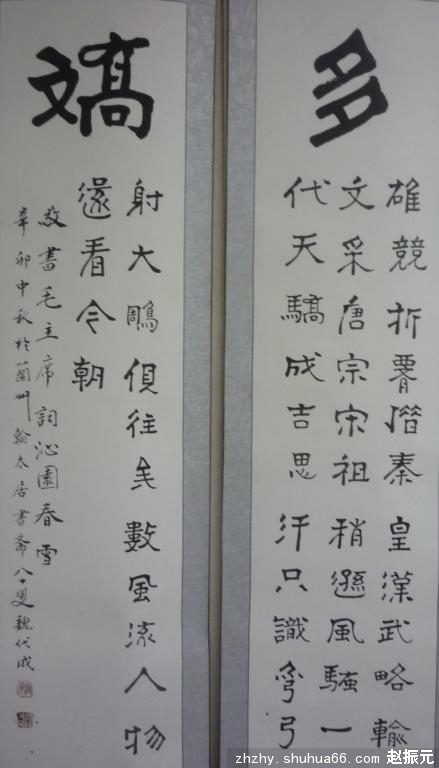 多
雄競折腰惜秦皇漢武略輸
文采唐宗宋祖稍遜風騷一
代天驕成吉思汗只識彎弓
嬌
射大鵰俱往矣數風流人物
還看今朝
敬書毛主席詞沁園春雪
辛卯中秋於蘭州翰太居書齋八十叟魏代成
zhzhy.shuhua66.com/赵振元